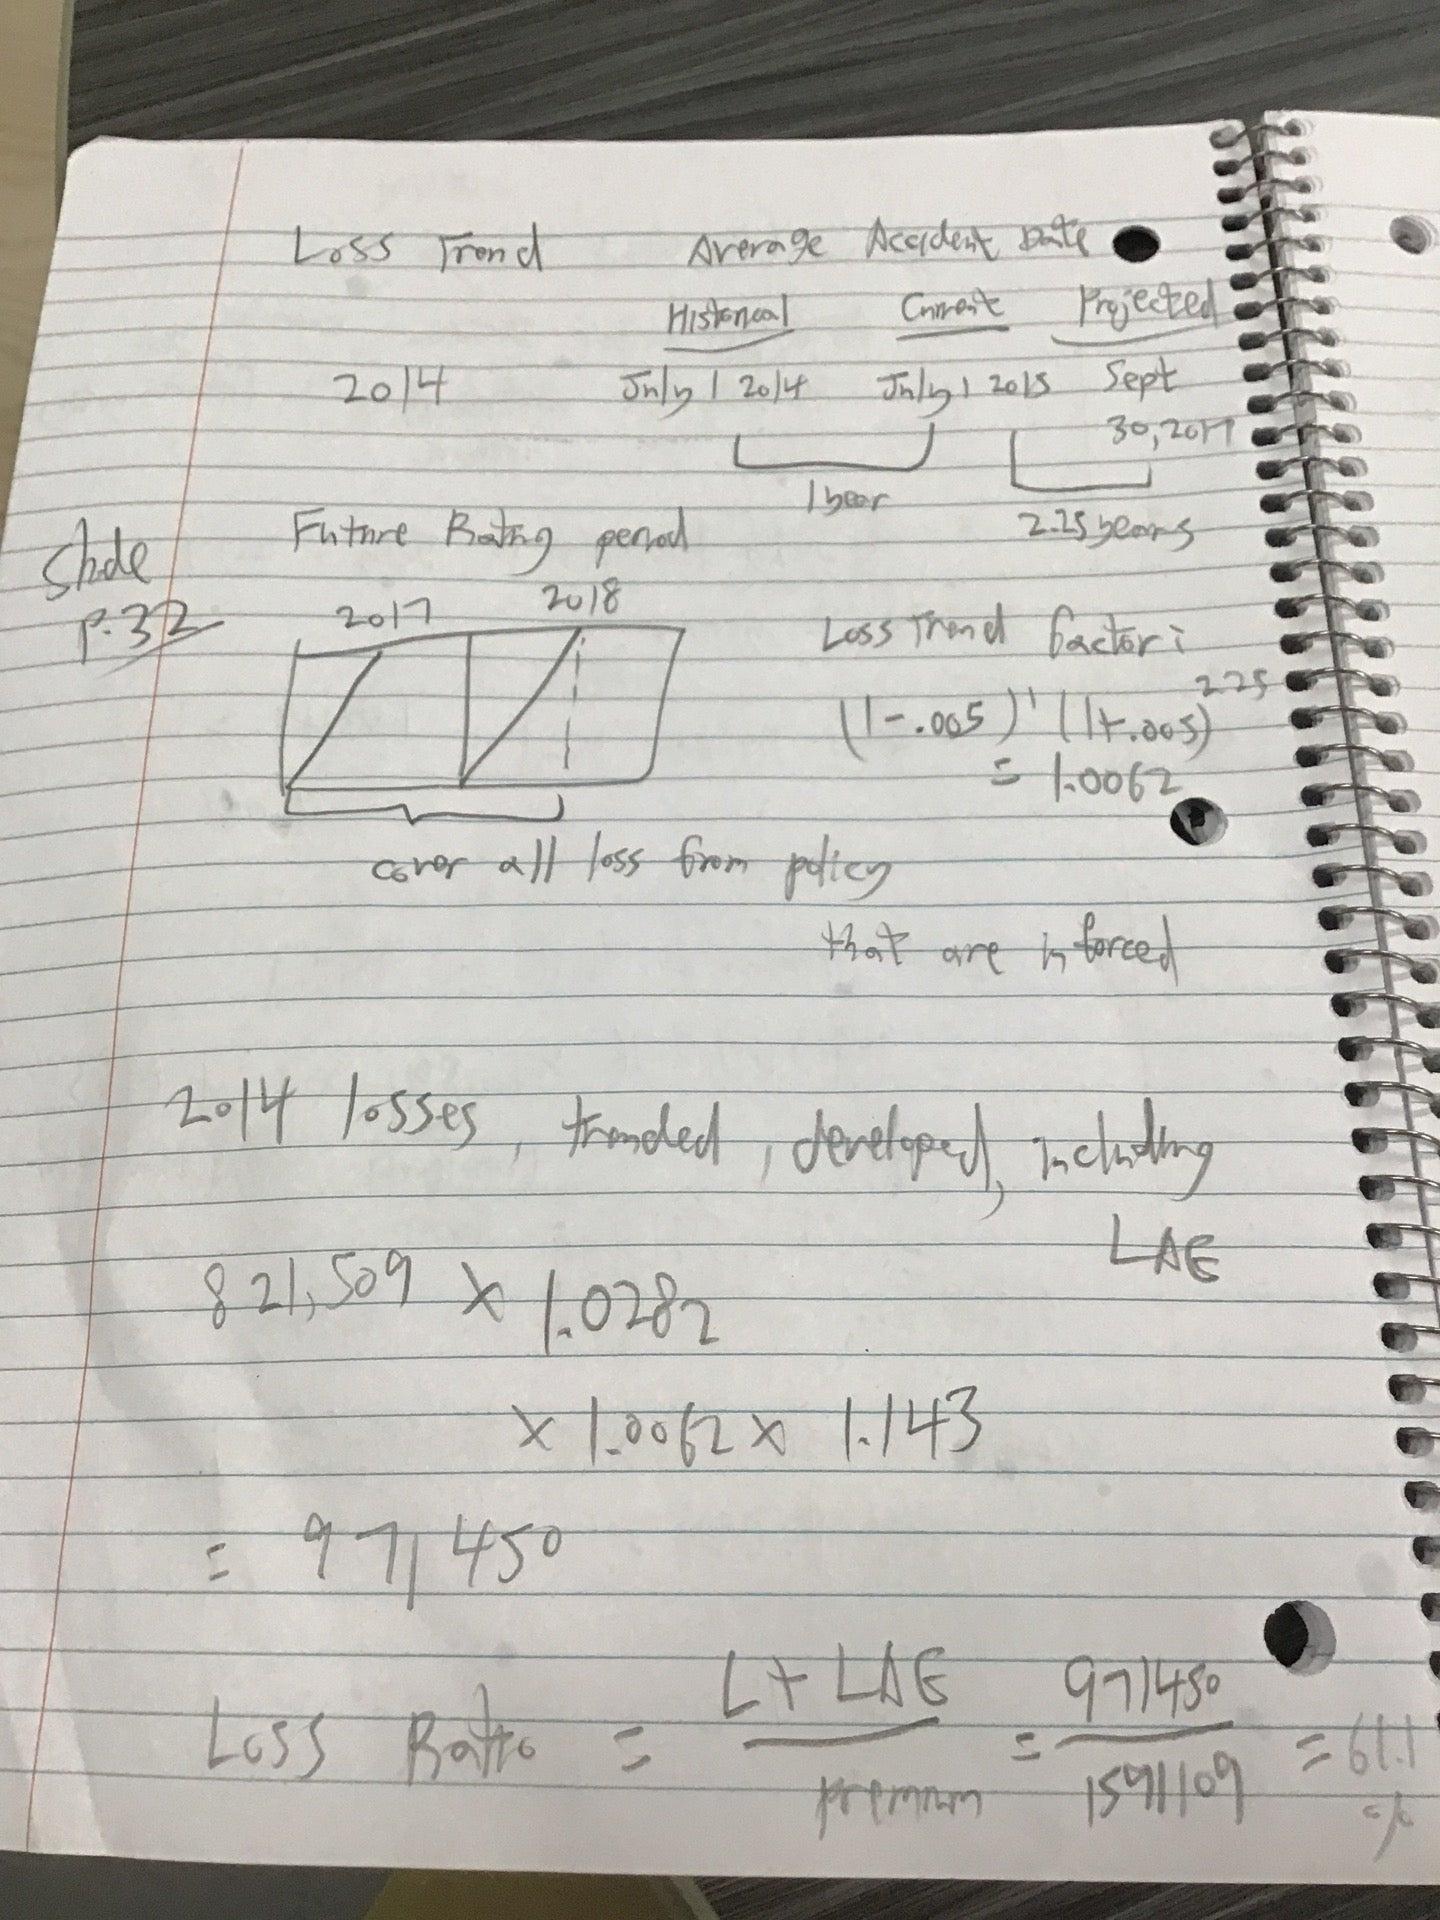 Loss Trend Average Accident Date
Historical Current Projected
2014 July 1 2014 July 1 2015 Sept
30, 2017
1 year
2.25 years
Slide
p.32
Future Rating period
2017 2018
Loss Trend factor:
(1-.005)¹ (1+.005)^2.25
= 1.0062
cover all loss from policy
that are inforced
2014 losses, trended, developed, including
LAE
821,509 x 1.0282
x 1.0062 x 1.143
= 971,450
Loss Ratio = L + LAE / premium = 971450 / 1591109 = 61.1
%